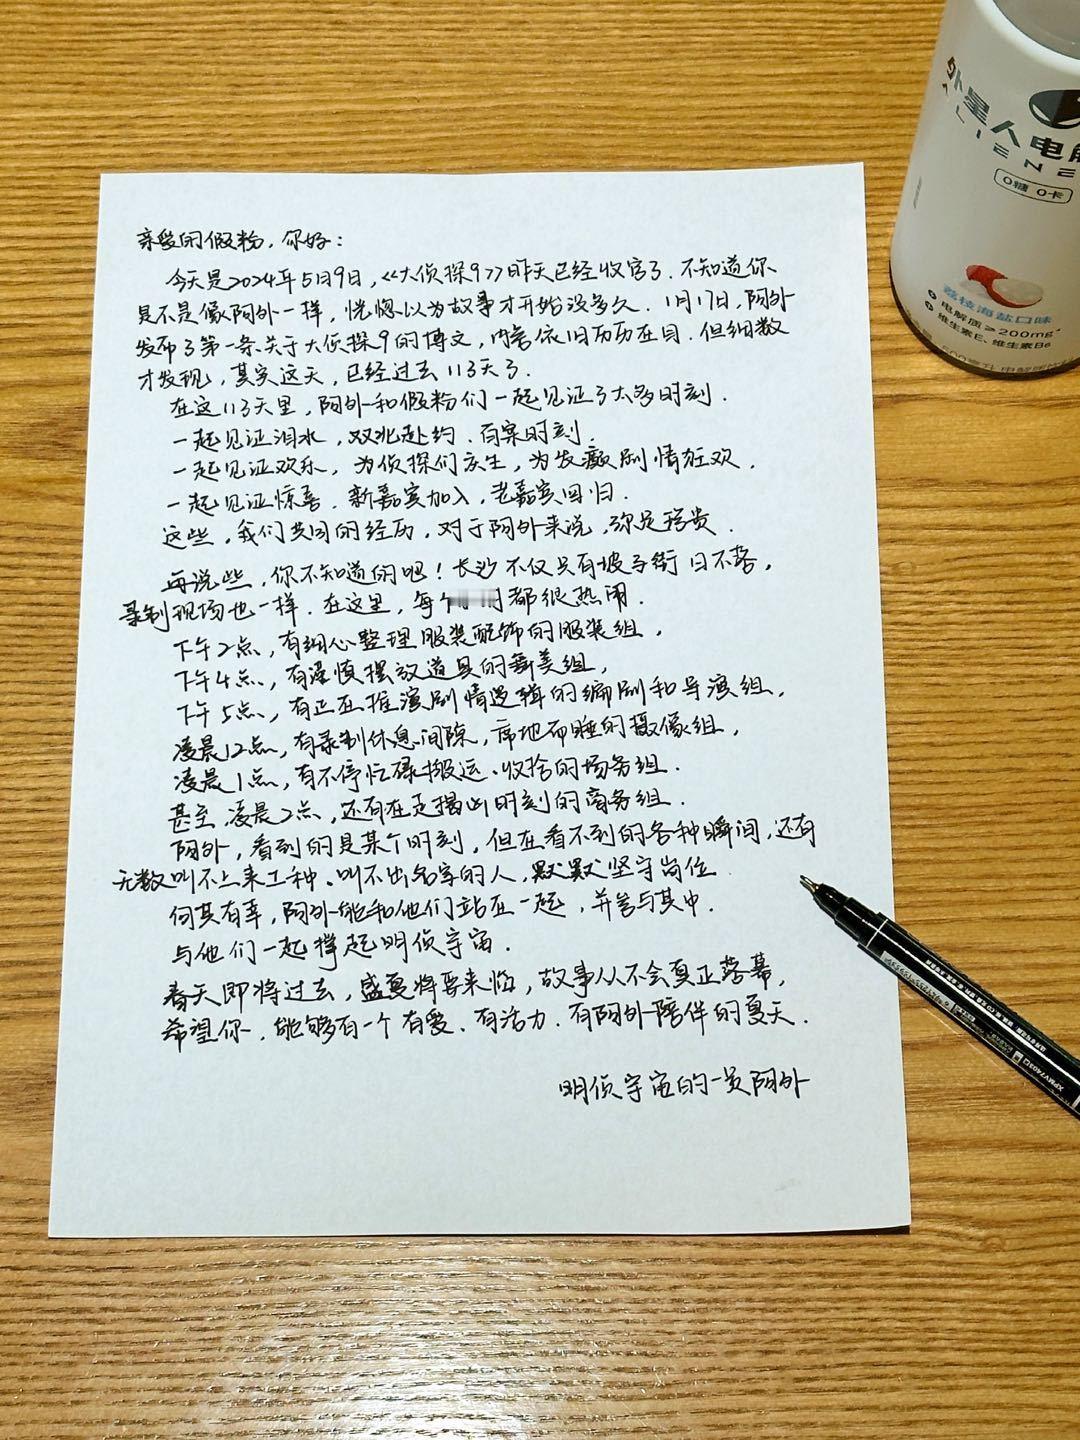 亲爱的假粉，你好：
今天是2024年5月9日，《大侦探9》昨天已经收官了．不知道你
是不是像阿外一样，恍惚以为故事才开始没多久．1月17日，阿外
发布了第一条关于大侦探9的博文，内容依旧历历在目．但细数
才发现，其实这天，已经过去113天了．
在这113天里，阿外和假粉们一起见证了太多时刻．
一起见证泪水，双北赴约．百案时刻．
一起见证欢乐，为侦探们庆生，为发癫剧情狂欢．
一起见证惊喜．新嘉宾加入，老嘉宾回归．
这些，我们共同的经历，对于阿外来说，弥足珍贵．
再说些，你不知道的吧！长沙不仅只有坡子街日不落，
录制现场也一样．在这里，每个 都很热闹．
下午2点，有细心整理服装配饰的服装组，
下午4点，有谨慎摆放道具的舞美组，
下午5点，有正在推演剧情逻辑的编剧和导演组，
凌晨12点，有录制休息间隙，席地而睡的摄像组，
凌晨1点，有不停忙碌搬运、收拾的场务组．
甚至凌晨2点，还有在走播出时刻的商务组．
阿外，看到的是某个时刻，但在看不到的各种瞬间，还有
无数叫不上来工种、叫不出名字的人，默默坚守岗位．
何其有幸，阿外能和他们站在一起，并参与其中．
与他们一起撑起明侦宇宙．
春天即将过去，盛夏将要来临，故事从不会真正落幕，
希望你，能够有一个有爱、有活力．有阿外陪伴的夏天．
明侦宇宙的一员阿外
外星人电解
ALIENE
0糖 0卡
荔枝海盐口味
电解质≥200mg
维生素E、维生素B6